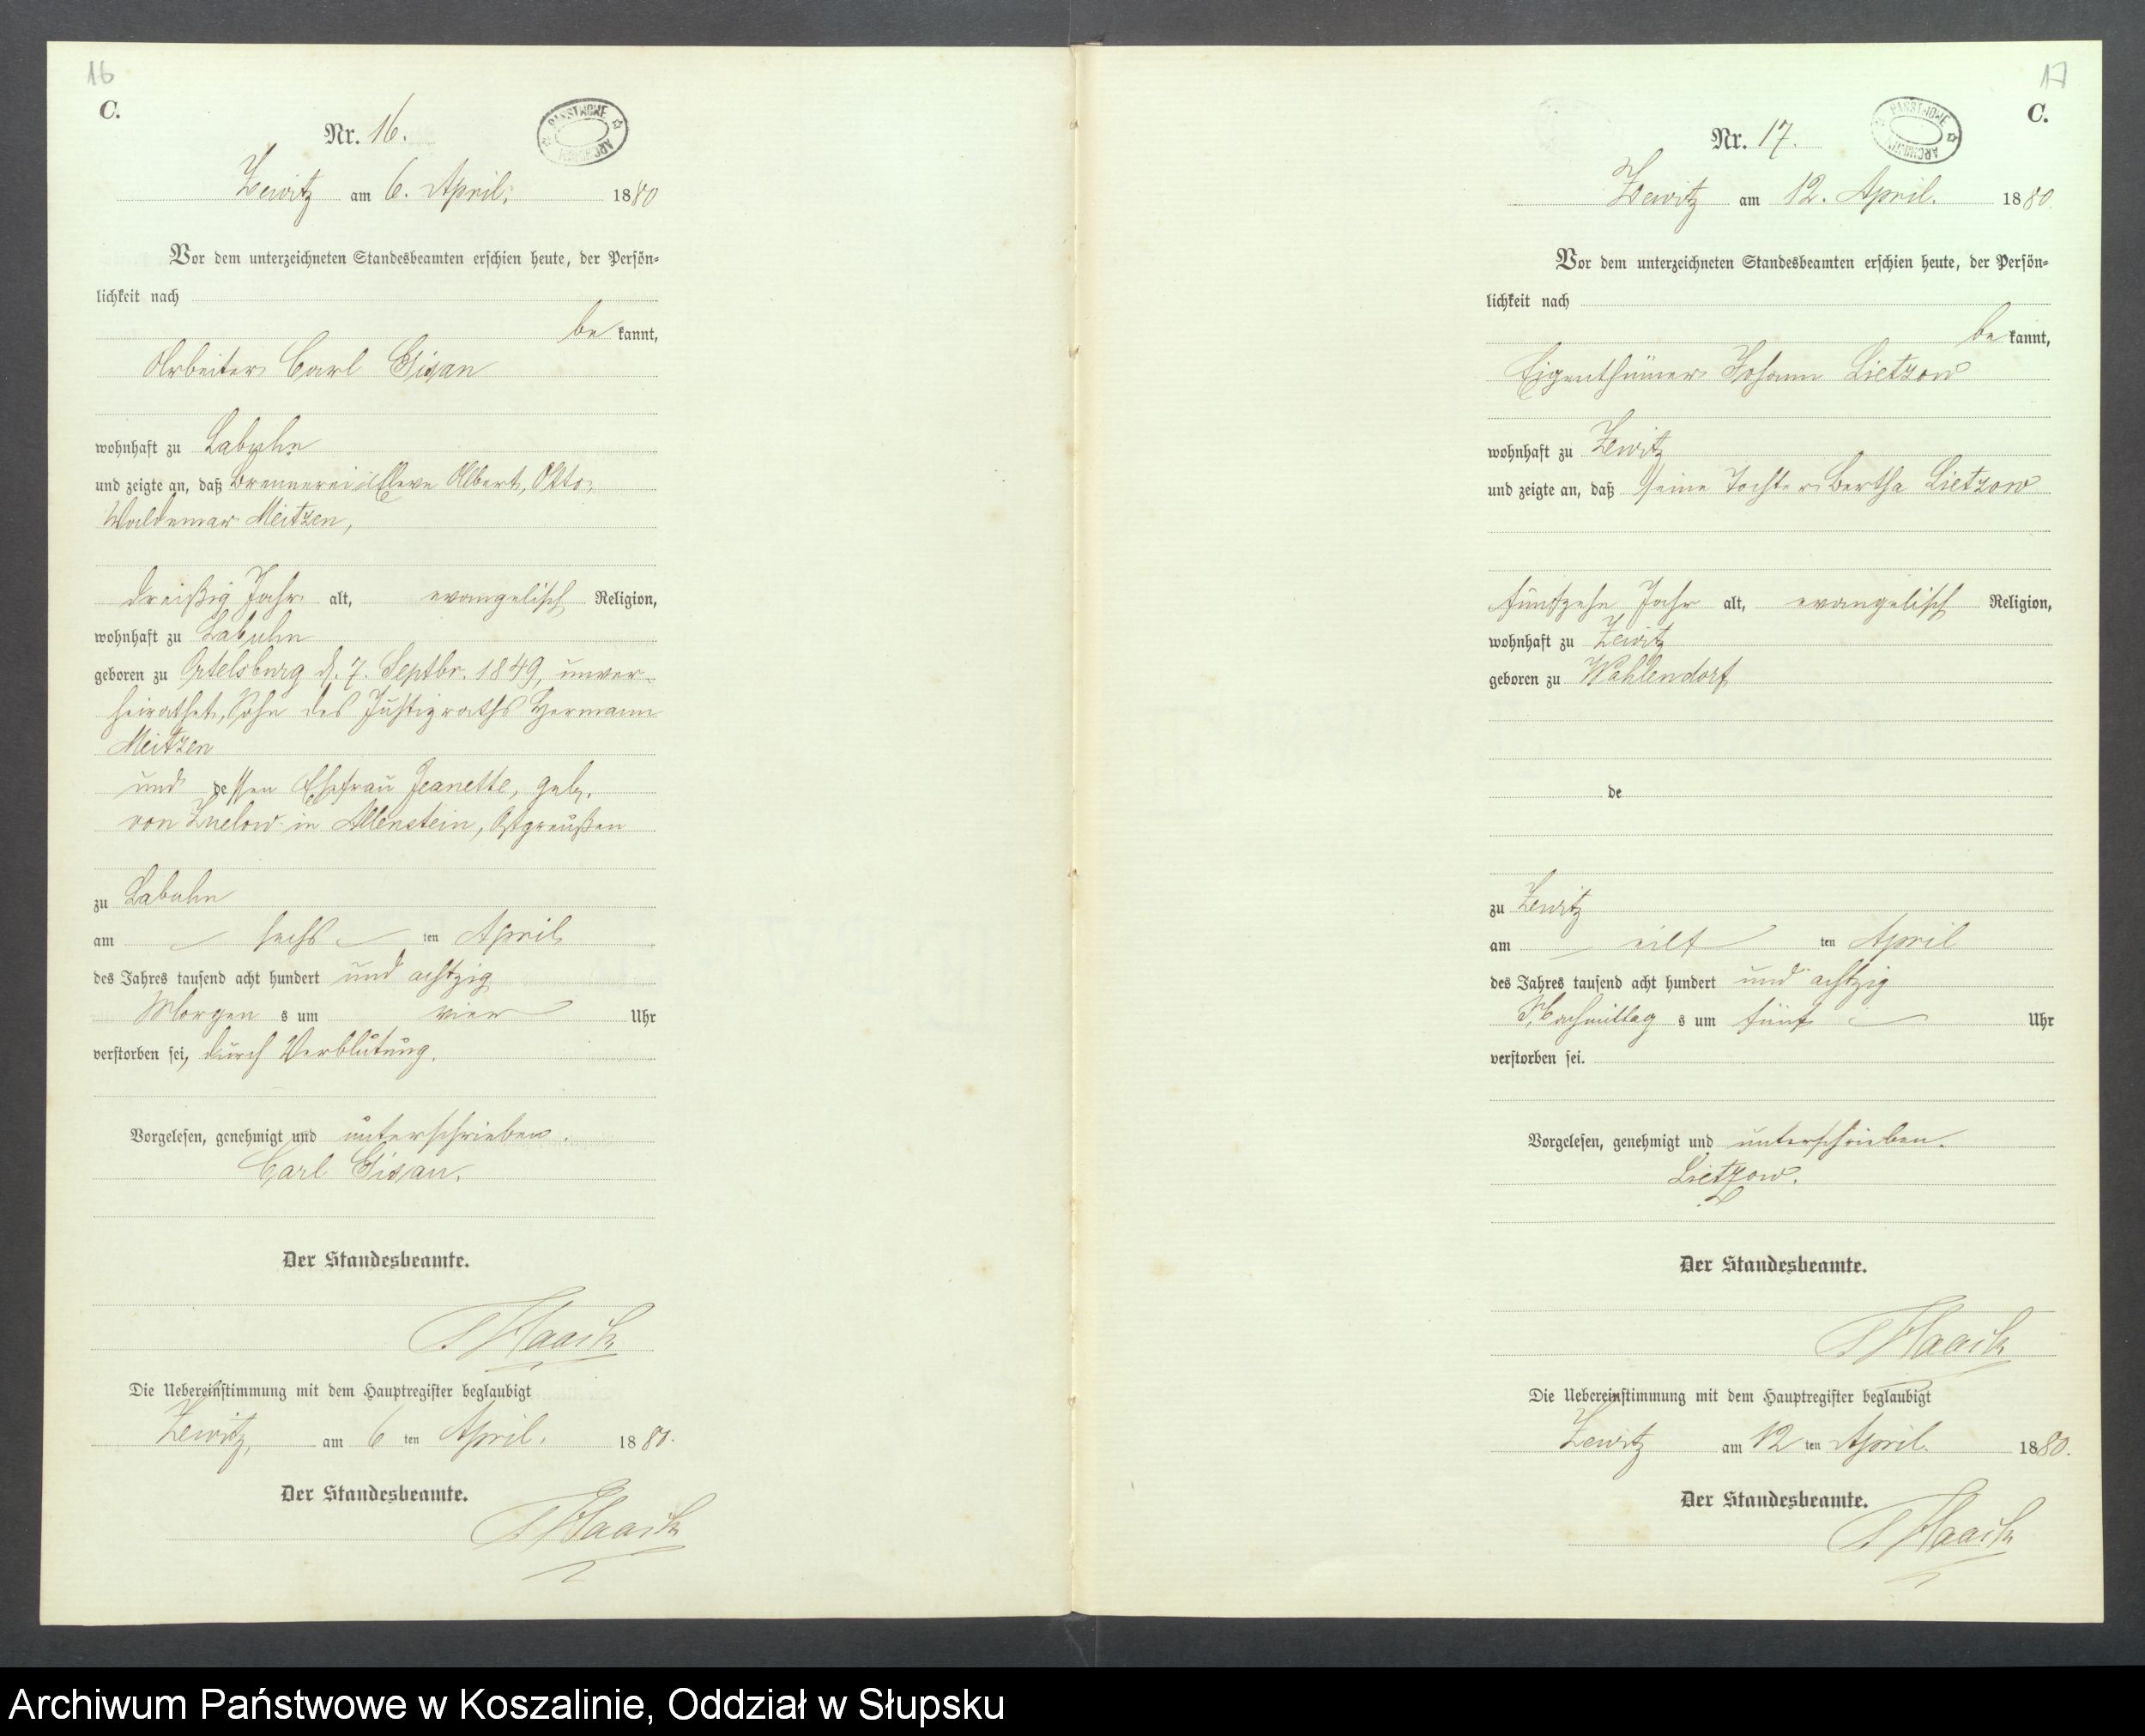 16
C.
Nr. 16.
PAŃSTWOWE
ARCHIWUM
Zewitz am 6. April. 1880
Vor dem unterzeichneten Standesbeamten erschien heute, der Persön-
lichkeit nach
be kannt,
Arbeiter Carl
wohnhaft zu Labuhn
und zeigte an, daß Brennerei-Eleve Albert, Otto,
Waldemar Meitzen,
dreißig Jahr alt, evangelisch Religion,
wohnhaft zu Labuhn
geboren zu Ortelsburg d. 7. Septbr. 1849, unver-
heirathet, Sohn des Justizraths Hermann
Meitzen
und dessen Ehefrau Jeanette, geb.
von in Allenstein, Ostpreußen
zu Labuhn
am sechs ten April
des Jahres tausend acht hundert und achtzig
Morgen s um vier Uhr
verstorben sei, durch Verblutung.
Vorgelesen, genehmigt und unterschrieben.
Carl
Der Standesbeamte.
Die Uebereinstimmung mit dem Hauptregister beglaubigt
Zewitz, am 6 ten April. 1880.
Der Standesbeamte.
17
C.
Nr. 17.
PAŃSTWOWE
ARCHIWUM
Zewitz am 12. April. 1880.
Vor dem unterzeichneten Standesbeamten erschien heute, der Persön-
lichkeit nach
be kannt,
Eigenthümer Johann Lietzow
wohnhaft zu Zewitz
und zeigte an, daß seine Tochter Bertha Lietzow
fünfzehn Jahr alt, evangelisch Religion,
wohnhaft zu Zewitz
geboren zu Wahlendorf
de
zu Zewitz
am eilf ten April
des Jahres tausend acht hundert und achtzig
Nachmittag s um fünf Uhr
verstorben sei.
Vorgelesen, genehmigt und unterschrieben.
Lietzow.
Der Standesbeamte.
Die Uebereinstimmung mit dem Hauptregister beglaubigt
Zewitz am 12 ten April. 1880.
Der Standesbeamte.
Archiwum Państwowe w Koszalinie, Oddział w Słupsku